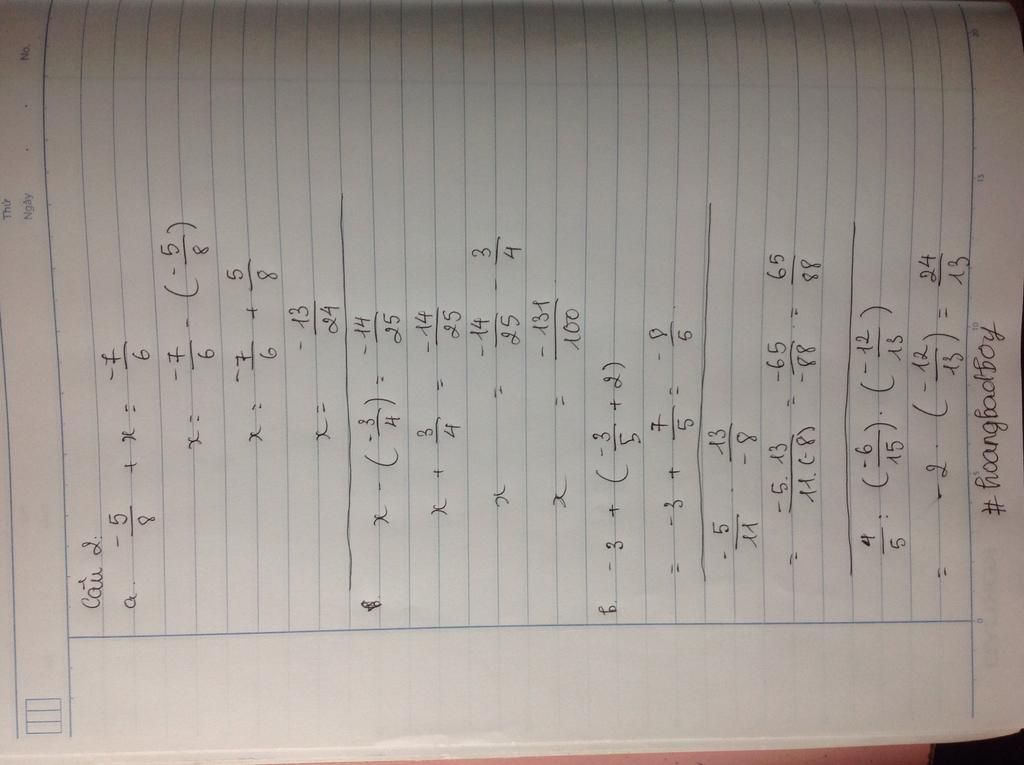 Thứ
Ngày
No.
Câu 2.
a. -5/8 + x = -7/6
x = -7/6 - (-5/8)
x = -7/6 + 5/8
x = -13/24
x - (-3/4) = -14/25
x + 3/4 = -14/25
x = -14/25 - 3/4
x = -131/100
b. -3 + (-3/5 + 2)
= -3 + 7/5 = -8/5
-5/11 . 13/-8
= -5.13/11.(-8) = -65/-88 = 65/88
4/5 : (-6/15) . (-12/13)
= -2 . (-12/13) = 24/13
#hoangbadboy
0
5
10
15
20